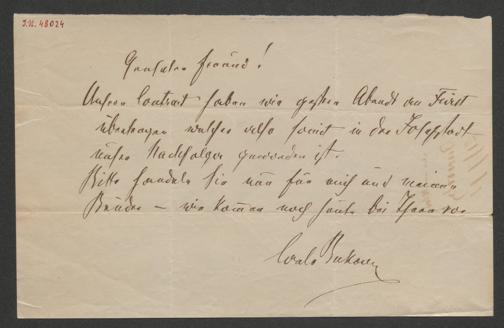 I.N. 48024
Geehrter Freund!
Unsern Contract haben wir gestern Abend an Fürst
übertragen welcher also somit in der Josefstadt
unser Nachfolger geworden ist.
Bitte handeln Sie nun für mich und meinen
Bruder – wir kommen noch heute bei Ihnen vor